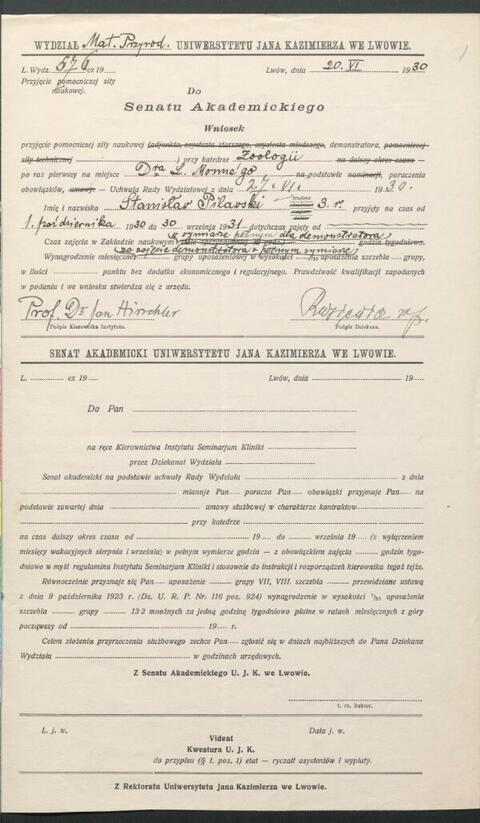 1
WYDZIAŁ Mat. Przyrod. UNIWERSYTETU JANA KAZIMIERZA WE LWOWIE.
L. Wydz. 576 ex 19 Lwów, dnia 20. VI. 1930
Przyjęcie pomocniczej siły
naukowej.
Do
Senatu Akademickiego
Wniosek
przyjęcie pomocniczej siły naukowej (adjunkta, asystenta starszego, asystenta młodszego, demonstratora, pomocniczej
siły technicznej) przy katedrze Zoologii na dalszy okres czasu —
po raz pierwszy na miejsce Dra L. Monne'go na podstawie nominacji, poruczenia
obowiązków, umowy — Uchwała Rady Wydziałowej z dnia 27. VI. 1930.
Imię i nazwisko Stanisław Pilawski student 3. r. przyjęty na czas od
1. października 1930 do 30 września 1931 dotychczas zajęty od
w wymiarze pełnym dla demonstratora
Czas zajęcia w Zakładzie naukowym godzin tygodniowo.
za zajęcie demonstratora w pełnym wymiarze
Wynagrodzenie miesięcznej grupy uposażeniowej w wysokości uposażenia szczebla grupy,
w ilości punktu bez dodatku ekonomicznego i regulacyjnego. Prawdziwość kwalifikacji zapodanych
w podaniu i we wniosku stwierdza się z urzędu.
Prof. Dr Jan Hirschler
Podpis Kierownika Instytutu. Podpis Dziekana.
SENAT AKADEMICKI UNIWERSYTETU JANA KAZIMIERZA WE LWOWIE.
L. ex 19 Lwów, dnia 19
Do Pan
na ręce Kierownictwa Instytutu Seminarjum Kliniki
przez Dziekanat Wydziału
Senat akademicki na podstawie uchwały Rady Wydziału z dnia
mianuje Pan porucza Pan obowiązki przyjmuje Pan na
podstawie zawartej dnia umowy służbowej w charakterze kontraktow
przy katedrze
na czas dalszy okres czasu od 19 do września 19 (z wyłączeniem
miesięcy wakacyjnych sierpnia i września) w pełnym wymiarze godzin — z obowiązkiem zajęcia godzin tygo-
dniowo w myśl regulaminu Instytutu Seminarjum Kliniki i stosownie do instrukcji i rozporządzeń kierownika tegoż tejże.
Równocześnie przyznaje się Pan uposażenie grupy VII, VIII. szczebla przewidziane ustawą
z dnia 9 października 1923 r. (Dz. U. R. P. Nr. 116 poz. 924) wynagrodzenie w wysokości uposażenia
szczebla grupy 13·2 mnożnych za jedną godzinę tygodniowo płatne w ratach miesięcznych z góry
począwszy od 19 r.
Celem złożenia przyrzeczenia służbowego zechce Pan zgłosić się w dniach najbliższych do Pana Dziekana
Wydziału w godzinach urzędowych.
Z Senatu Akademickiego U. J. K. we Lwowie.
t. cz. Rektor.
L. j. w. Data j. w.
Videat
Kwestura U. J. K.
do przypisu (§ 1. poz. 1) etat — ryczałt asystentów i wypłaty.
Z Rektoratu Uniwersytetu Jana Kazimierza we Lwowie.